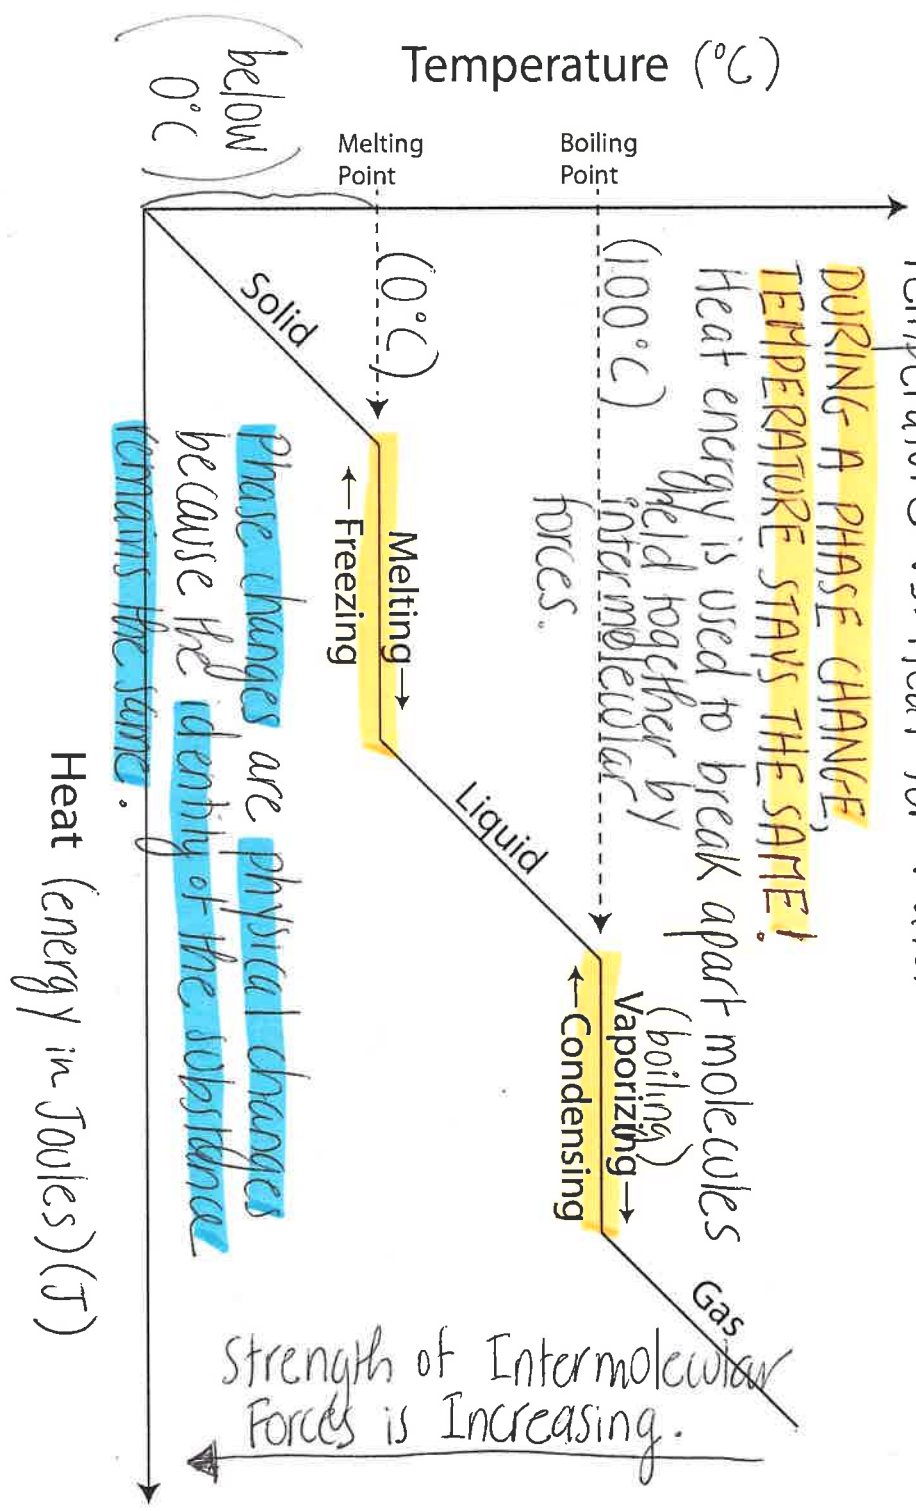 Temperature (°C)
(below
0°C)
Melting
Point
Boiling
Point
DURING A PHASE CHANGE,
TEMPERATURE STAYS THE SAME!
Heat energy is used to break apart molecules
held together by
intermolecular
forces.
(100°C)
(0°C)
Solid
Melting →
← Freezing
Liquid
(boiling)
Vaporizing →
← Condensing
Gas
Phase changes are physical changes
because the identity of the substance
remains the same.
Strength of Intermolecular
Forces is Increasing.
Heat (energy in Joules) (J)